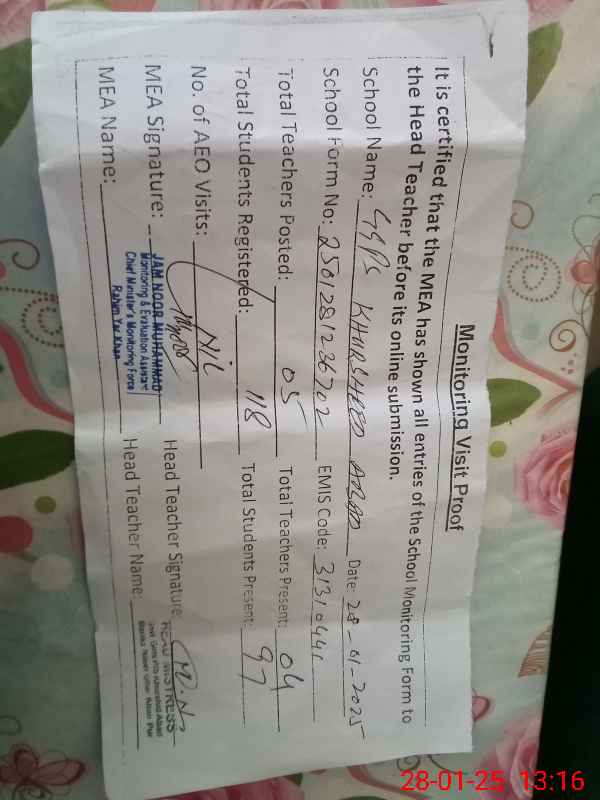 Monitoring Visit Proof
It is certified that the MEA has shown all entries of the School Monitoring Form to
the Head Teacher before its online submission.
School Name: GGPS KHURSHEED ABAD Date: 28-01-2025
School Form No: 2501281236702 EMIS Code: 31310441
Total Teachers Posted: 05 Total Teachers Present: 04
Total Students Registered: 118 Total Students Present: 97
No. of AEO Visits: NIL
MEA Signature: Head Teacher Signature:
JAM NOOR MUHAMMAD
Monitoring & Evaluation Assistant
Chief Minister's Monitoring Force
Rahim Yar Khan
HEAD MISTRESS
MEA Name: Head Teacher Name:
28-01-25 13:16